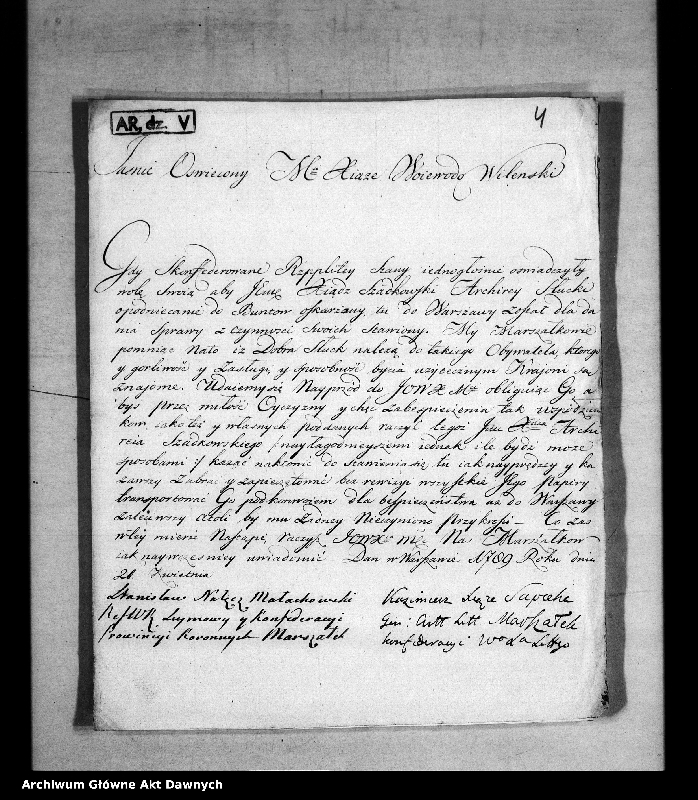 AR, dz. V
4
Jasnie Oswiecony Mci Xiąze Woiewodo Wilenski
Gdy Skonfederowane Rzpplitey Stany iednogłosnie oswiadczyły
wolę swoią aby Jmc Xiądz Szadkowski Archirey Słucki
o podniecanie do Buntow oskarżany tu do Warszawy zesłał dla da
nia sprawy z czynnosci Swoich Stawiony. My Marszałkowie
pomniąc Nato iż Dobra Słuck należą do takiego Obywatela, ktorego
y gorliwość y Zasługi, y sposobność bycia użytecznym Kraiowi są
znajome. Udaiemysię Nayprzod do JOWX Mci obliguiąc Go a
byś przez miłość Oyczyzny y chęć zabespieczenia tak współziom
kow iako też y własnych poddanych raczył tegoż Jmc Xiędza Archi
reia Szadkowskiego /: nayłagodnieyszemi iednak ile bydź może
sposobami :/ kazać nakłonić do stawienia się tu iak nayprędzey y ka
zawszy Zabrać y zapieczętować bez rewizyi wszystkie Jego Papiery
transportować Go pod konwoiem dla bespieczeństwa aż do Warszawy
zaleciwszy ażeli by mu żadney Nieczyniono przykrości — Co zas
w tey mierze Nastąpi, raczysz JOWX Mć Nas Marszałkow
iak naywczesniey uwiadomić Dan w Warszawie 1789 Roku dnia
21 Kwietnia
Stanisław Nałęcz Małachowski
Kazimierz Xiąze Sapieha
Ref WK Seymowy y Konfederacyi
Gen: Artt Litt Marszałek
Prowincyi Koronnych Marszałek
konfederacyi W°da Littgo
Archiwum Główne Akt Dawnych